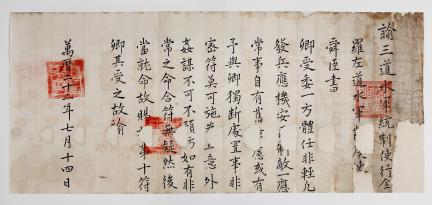 諭三道水軍統制使行全
羅左道水軍
舜臣書
卿受委一方體任非輕凡
發兵應機安制敵一應
常事自有舊慮或有
予與卿獨斷處置事非
密符莫可施為且意外
姦謀不可不預防如有非
常之命合符無疑然後
當就命故賜第十符
卿其受之故諭
萬曆二十年七月十四日